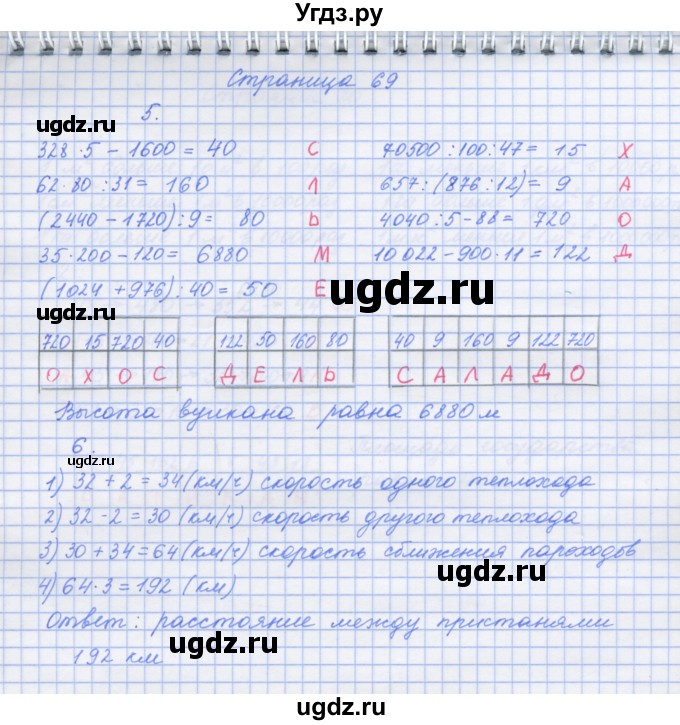 Угдз.ру
Страница 69
5.
ugdz.ru ugdz.ru
328·5 - 1600 = 40 С 70500:100:47 = 15 Х
62·80:31 = 160 Л 657:(876:12) = 9 А
(2440 - 1720):9 = 80 Ь 4040:5-88 = 720 О
35·200 - 120 = 6880 М 10022 - 900·11 = 122 Д
(1024 + 976):40 = 50 Е
ugdz.ru
720 15 720 40 122 50 160 80 40 9 160 9 122 720
О Х О С Д Е Л Ь С А Л А Д О
Высота вулкана равна 6880 м
6.
ugdz.ru
1) 32 + 2 = 34 (км/ч) скорость одного теплохода
2) 32 - 2 = 30 (км/ч) скорость другого теплохода
3) 30 + 34 = 64 (км/ч) скорость сближения пароходов
ugdz.ru
4) 64·3 = 192 (км)
Ответ: расстояние между пристанями
ugdz.ru ugdz.ru
192 км
ugdz.ru